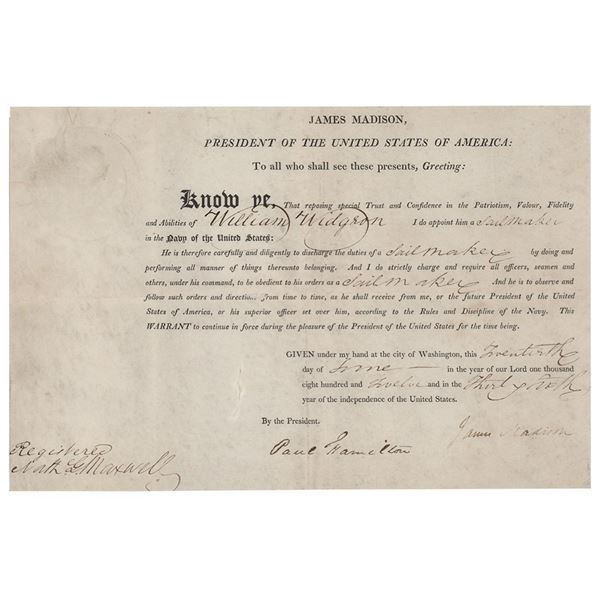 JAMES MADISON,
PRESIDENT OF THE UNITED STATES OF AMERICA:
To all who shall see these presents, Greeting:
Know ye, That reposing special Trust and Confidence in the Patriotism, Valour, Fidelity
and Abilities of William Widgron I do appoint him a Sailmaker
in the Navy of the United States:
He is therefore carefully and diligently to discharge the duties of a Sailmaker by doing and
performing all manner of things thereunto belonging. And I do strictly charge and require all officers, seamen and
others, under his command, to be obedient to his orders as a Sailmaker And he is to observe and
follow such orders and directions from time to time, as he shall receive from me, or the future President of the United
States of America, or his superior officer set over him, according to the Rules and Discipline of the Navy. This
WARRANT to continue in force during the pleasure of the President of the United States for the time being.
GIVEN under my hand at the city of Washington, this Twentieth
day of June in the year of our Lord one thousand
eight hundred and Twelve and in the Thirty Sixth
year of the independence of the United States.
By the President.
James Madison
Paul Hamilton
Registered
Nath L Maxwell